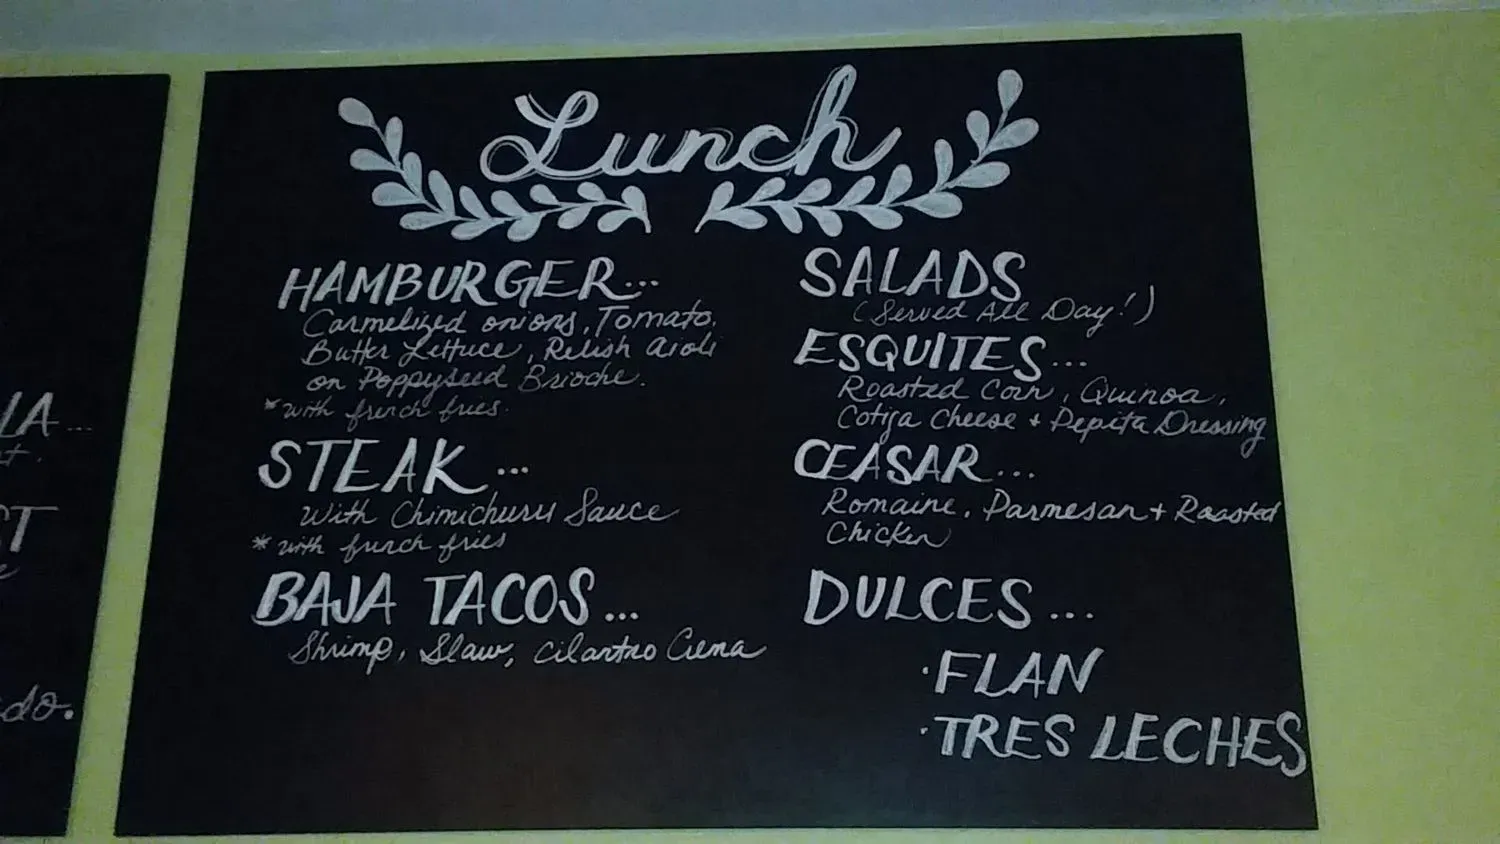 Lunch
HAMBURGER...
Carmelized onions, Tomato,
Butter Lettuce, Relish aioli
on Poppyseed Brioche.
*with french fries.
STEAK ...
With Chimichurri Sauce
*with french fries
BAJA TACOS...
Shrimp, Slaw, Cilantro Crema
SALADS
(Served All Day!)
ESQUITES...
Roasted Corn, Quinoa,
Cotija Cheese + Pepita Dressing
CEASAR...
Romaine, Parmesan + Roasted
Chicken
DULCES...
·FLAN
·TRES LECHES
LA...
do.